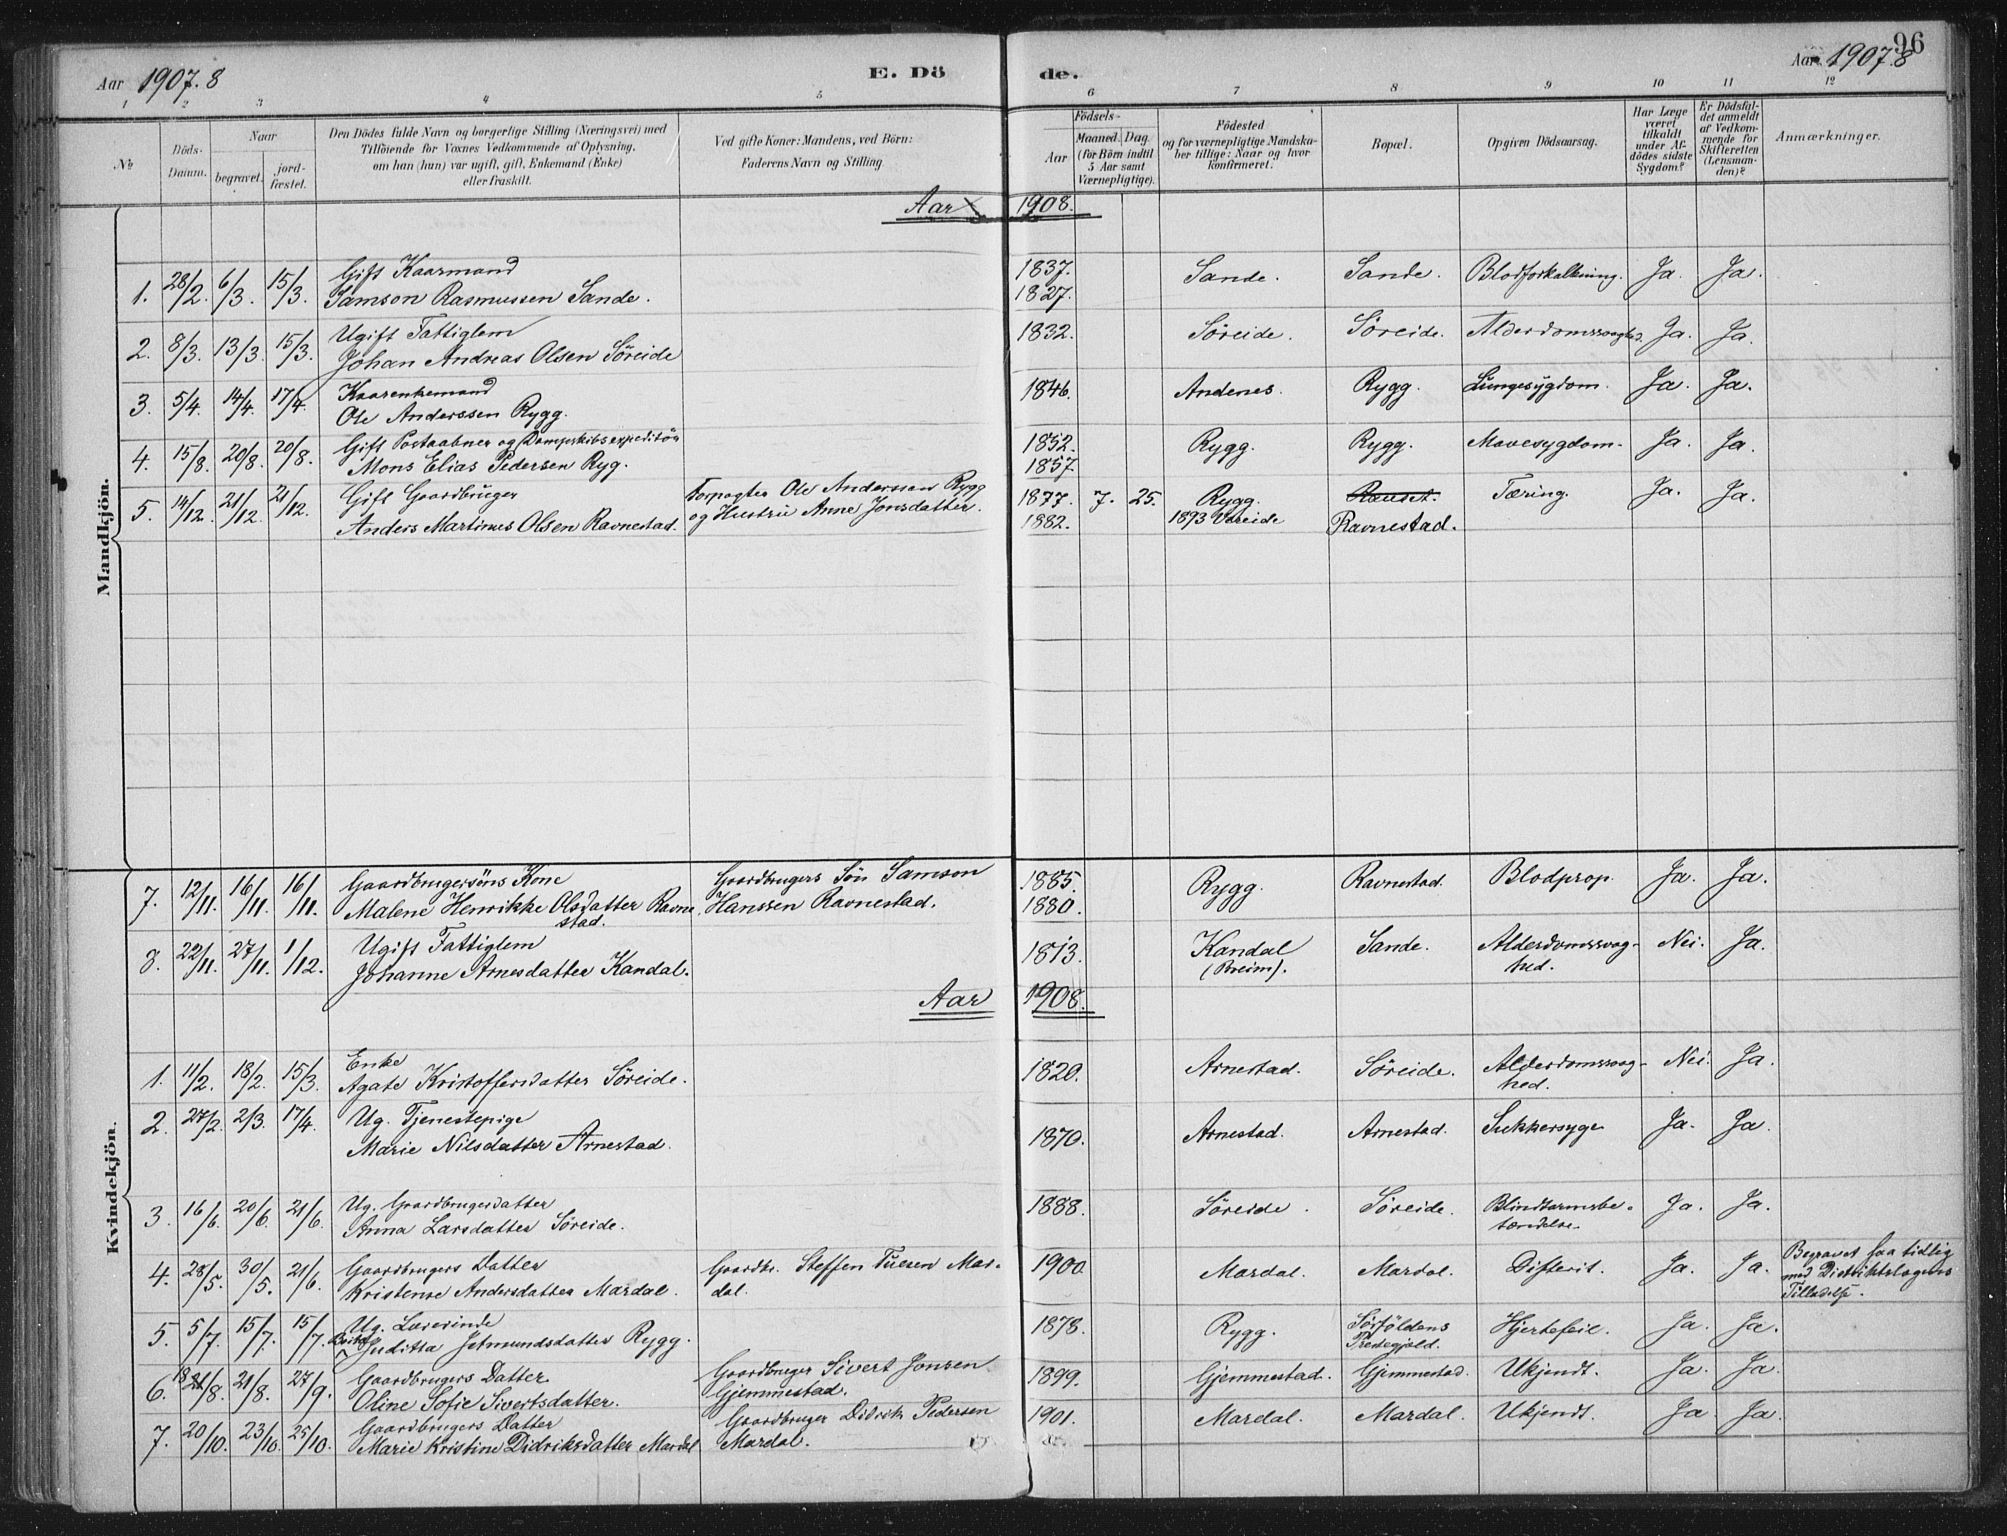 Aar 1907.8
E. Dö
de.
96
Aar 1907.8
1 2 3 4 5 6 7 8 9 10 11 12
No
Döds-Datum.
Naar
begravet.
jord-fæstet.
Den Dödes fulde Navn og borgerlige Stilling (Næringsvei) med
Tilföiende for Voxnes Vedkommende af Oplysning,
om han (hun) var ugift, gift, Enkemand (Enke)
eller fraskilt.
Ved gifte Koner: Mandens, ved Börn:
Faderens Navn og Stilling
Födsels-
Aar
Maaned. Dag.
(for Börn indtil
5 Aar samt
Værnepligtige).
Födested
og for værnepligtige Mandska-
ber tillige: Naar og hvor
konfirmeret.
Bopæl.
Opgiven Dödsaarsag.
Har Læge
været
tilkaldt
under Af-
dödes sidste
Sygdom?
Er Dödsfal-
det anmeldt
af Vedkom-
mende for
Skifteretten
(Lensman-
den)?
Anmærkninger.
Mandkjön.
Aar 1908.
1. 28/2. 6/3. 15/3. Gift Kaarmand
Samson Rasmussen Sande. 1837. 1827. Sande. Sande. Blodforkalkning. Ja. Ja.
2. 8/3. 13/3. 15/3. Ugift Fattiglem
Johan Andreas Olsen Söreide 1832. Söreide. Söreide. Alderdomssvaghed. Ja. Ja.
3. 5/4. 14/4. 17/4. Kaarenkemand
Ole Anderssen Rygg. 1846. Andenes. Rygg. Lungesygdom. Ja. Ja.
4. 15/8. 20/8. 20/8. Gift Postaabner og Dampskibsexpeditör
Mons Elias Pedersen Ryg. 1852. 1857. Rygg. Rygg. Mavesygdom. Ja. Ja.
5. 14/12. 21/12. 21/12. Gift Gaardbruger
Anders Martinus Olsen Ravnestad. Forpagter Ole Anderssen Rygg
og Hustru Anne Jonsdatter. 1877. 7. 25. 1882. Rygg.
1893 Vereide Ravnestad. Tæring. Ja. Ja.
Kvindekjön.
7. 12/11. 16/11. 16/11. Gaardbrugersöns Kone
Malene Henrikke Olsdatter Ravne
stad. Gaardbrugers Sön Samson
Hanssen Ravnestad. 1885. 1880. Rygg. Ravnestad. Blodprop. Ja. Ja.
8. 22/11. 27/11. 1/12. Ugift Fattiglem
Johanne Arnesdatter Kandal. 1813. Kandal
(Breim). Sande. Alderdomssvag-
hed. Nei. Ja.
Aar 1908.
1. 11/2. 18/2. 15/3. Enke
Agate Kristoffersdatter Söreide. 1820. Arnestad. Söreide. Alderdomssvag-
hed. Nei. Ja.
2. 27/2. 2/3. 17/4. Ug. Tjenestepige
Marie Nilsdatter Arnestad. 1870. Arnestad. Arnestad. Sukkersyge Ja. Ja.
3. 16/6. 20/6. 21/6. Ug. Gaardbrugerdatter
Anna Larsdatter Söreide. 1888. Söreide. Söreide. Blindtarmsbe-
tændelse. Ja. Ja.
4. 28/5. 30/5. 21/6. Gaardbrugers Datter
Kristense Andersdatter Mardal. Gaardbr. Steffen Mar-
dal. 1900 Mardal. Mardal. Difterit. Ja. Ja. Begravet faa tidlig
med Distriktslægens
Tilladelse.
5. 5/7. 15/7. 15/7. Ug. Lærerinde
Juditta Jetmundsdatter Rygg. 1878. Rygg. Hjertefeil. Ja. Ja.
6. 21/8. 27/9. Gaardbrugers Datter
Oline Sofie Sivertsdatter. Gaardbruger Sivert Jonsen
Gjemmestad. 1899. Gjemmestad. Gjemmestad. Ukjendt. Ja. Ja.
7. 20/10. 23/10. 25/10. Gaardbrugers Datter
Marie Kristine Didriksdatter Mardal Gaardbruger Didrik Pedersen
Mardal. 1901. Mardal. Mardal. Ukjendt. Ja. Ja.